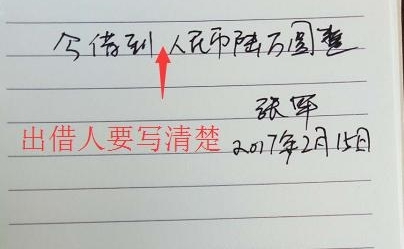 今借到人民币陆万圆整
张军
出借人要写清楚
2017年2月15日